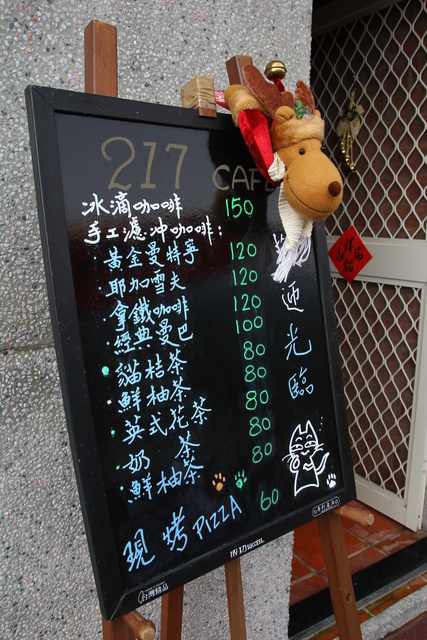 217 CAFE
冰滴咖啡 150
手工濾沖咖啡:
黃金曼特寧 120
耶加雪夫 120
拿鐵咖啡 120
經典曼巴 100
貓桔茶 80
鮮柚茶 80
英式花茶 80
奶茶 80
鮮柚茶 80
現烤PIZZA 60
迎光臨
台灣精品